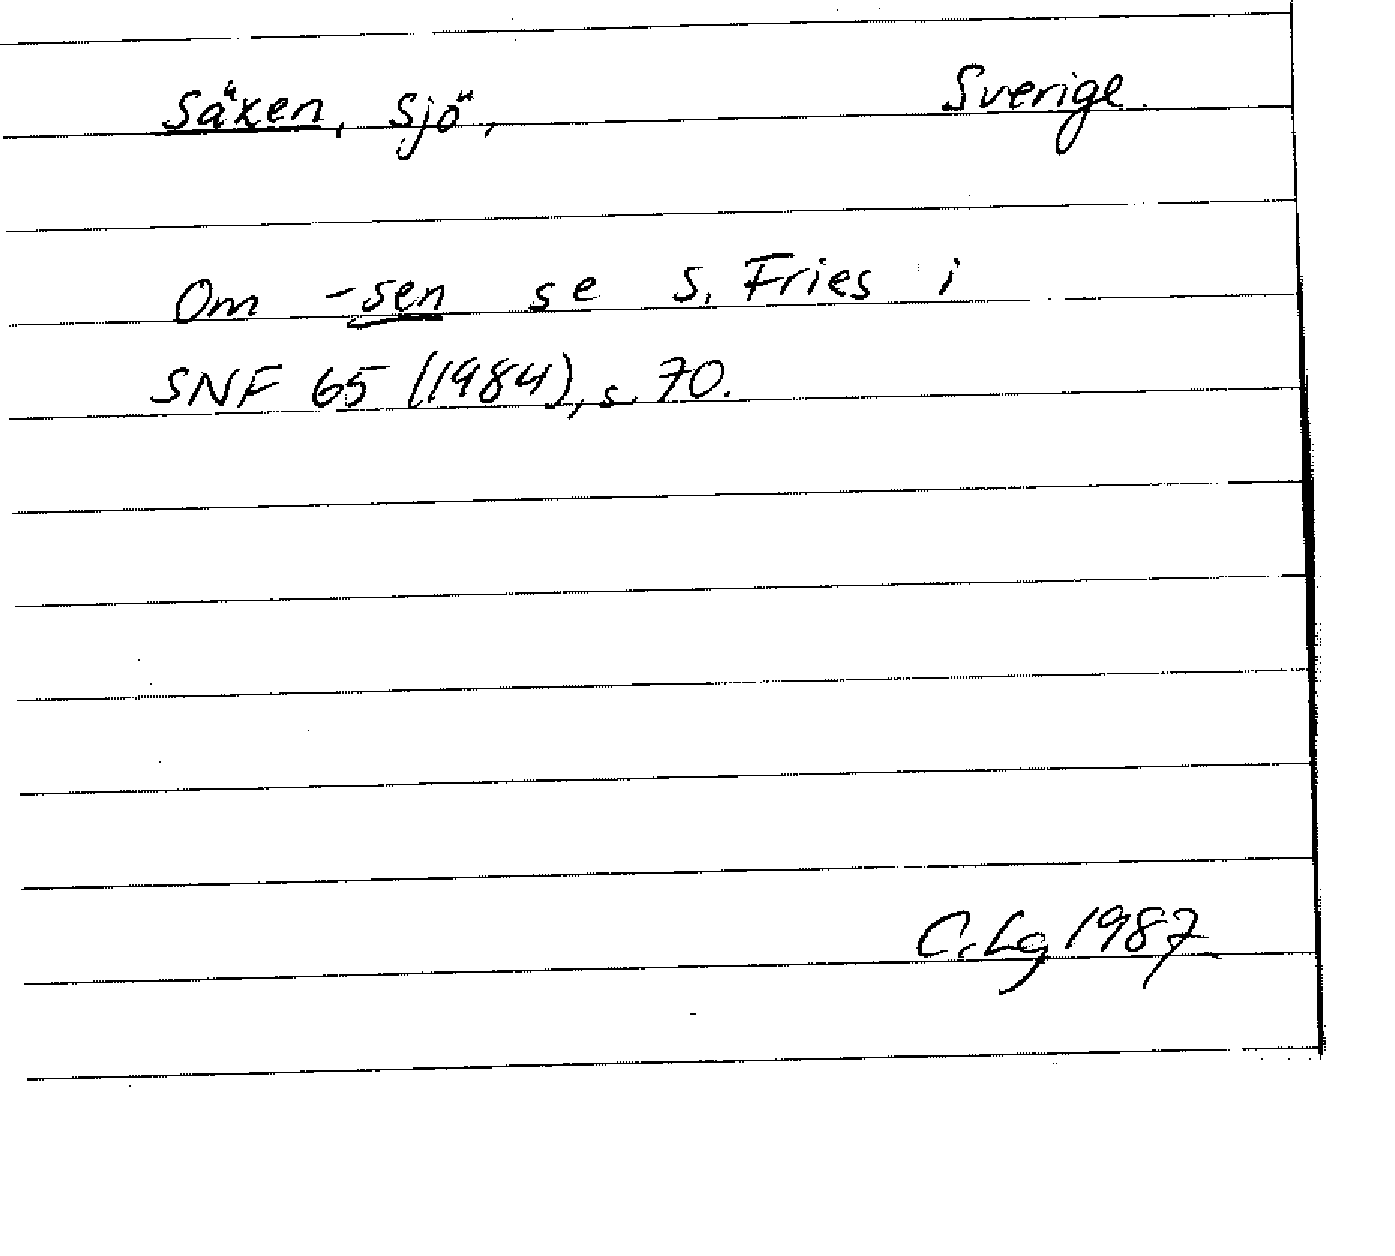 Säxen, Sjö, Sverige.
Om -sen se S. Fries i
SNF 65 (1984), s. 70.
C. Lg 1987